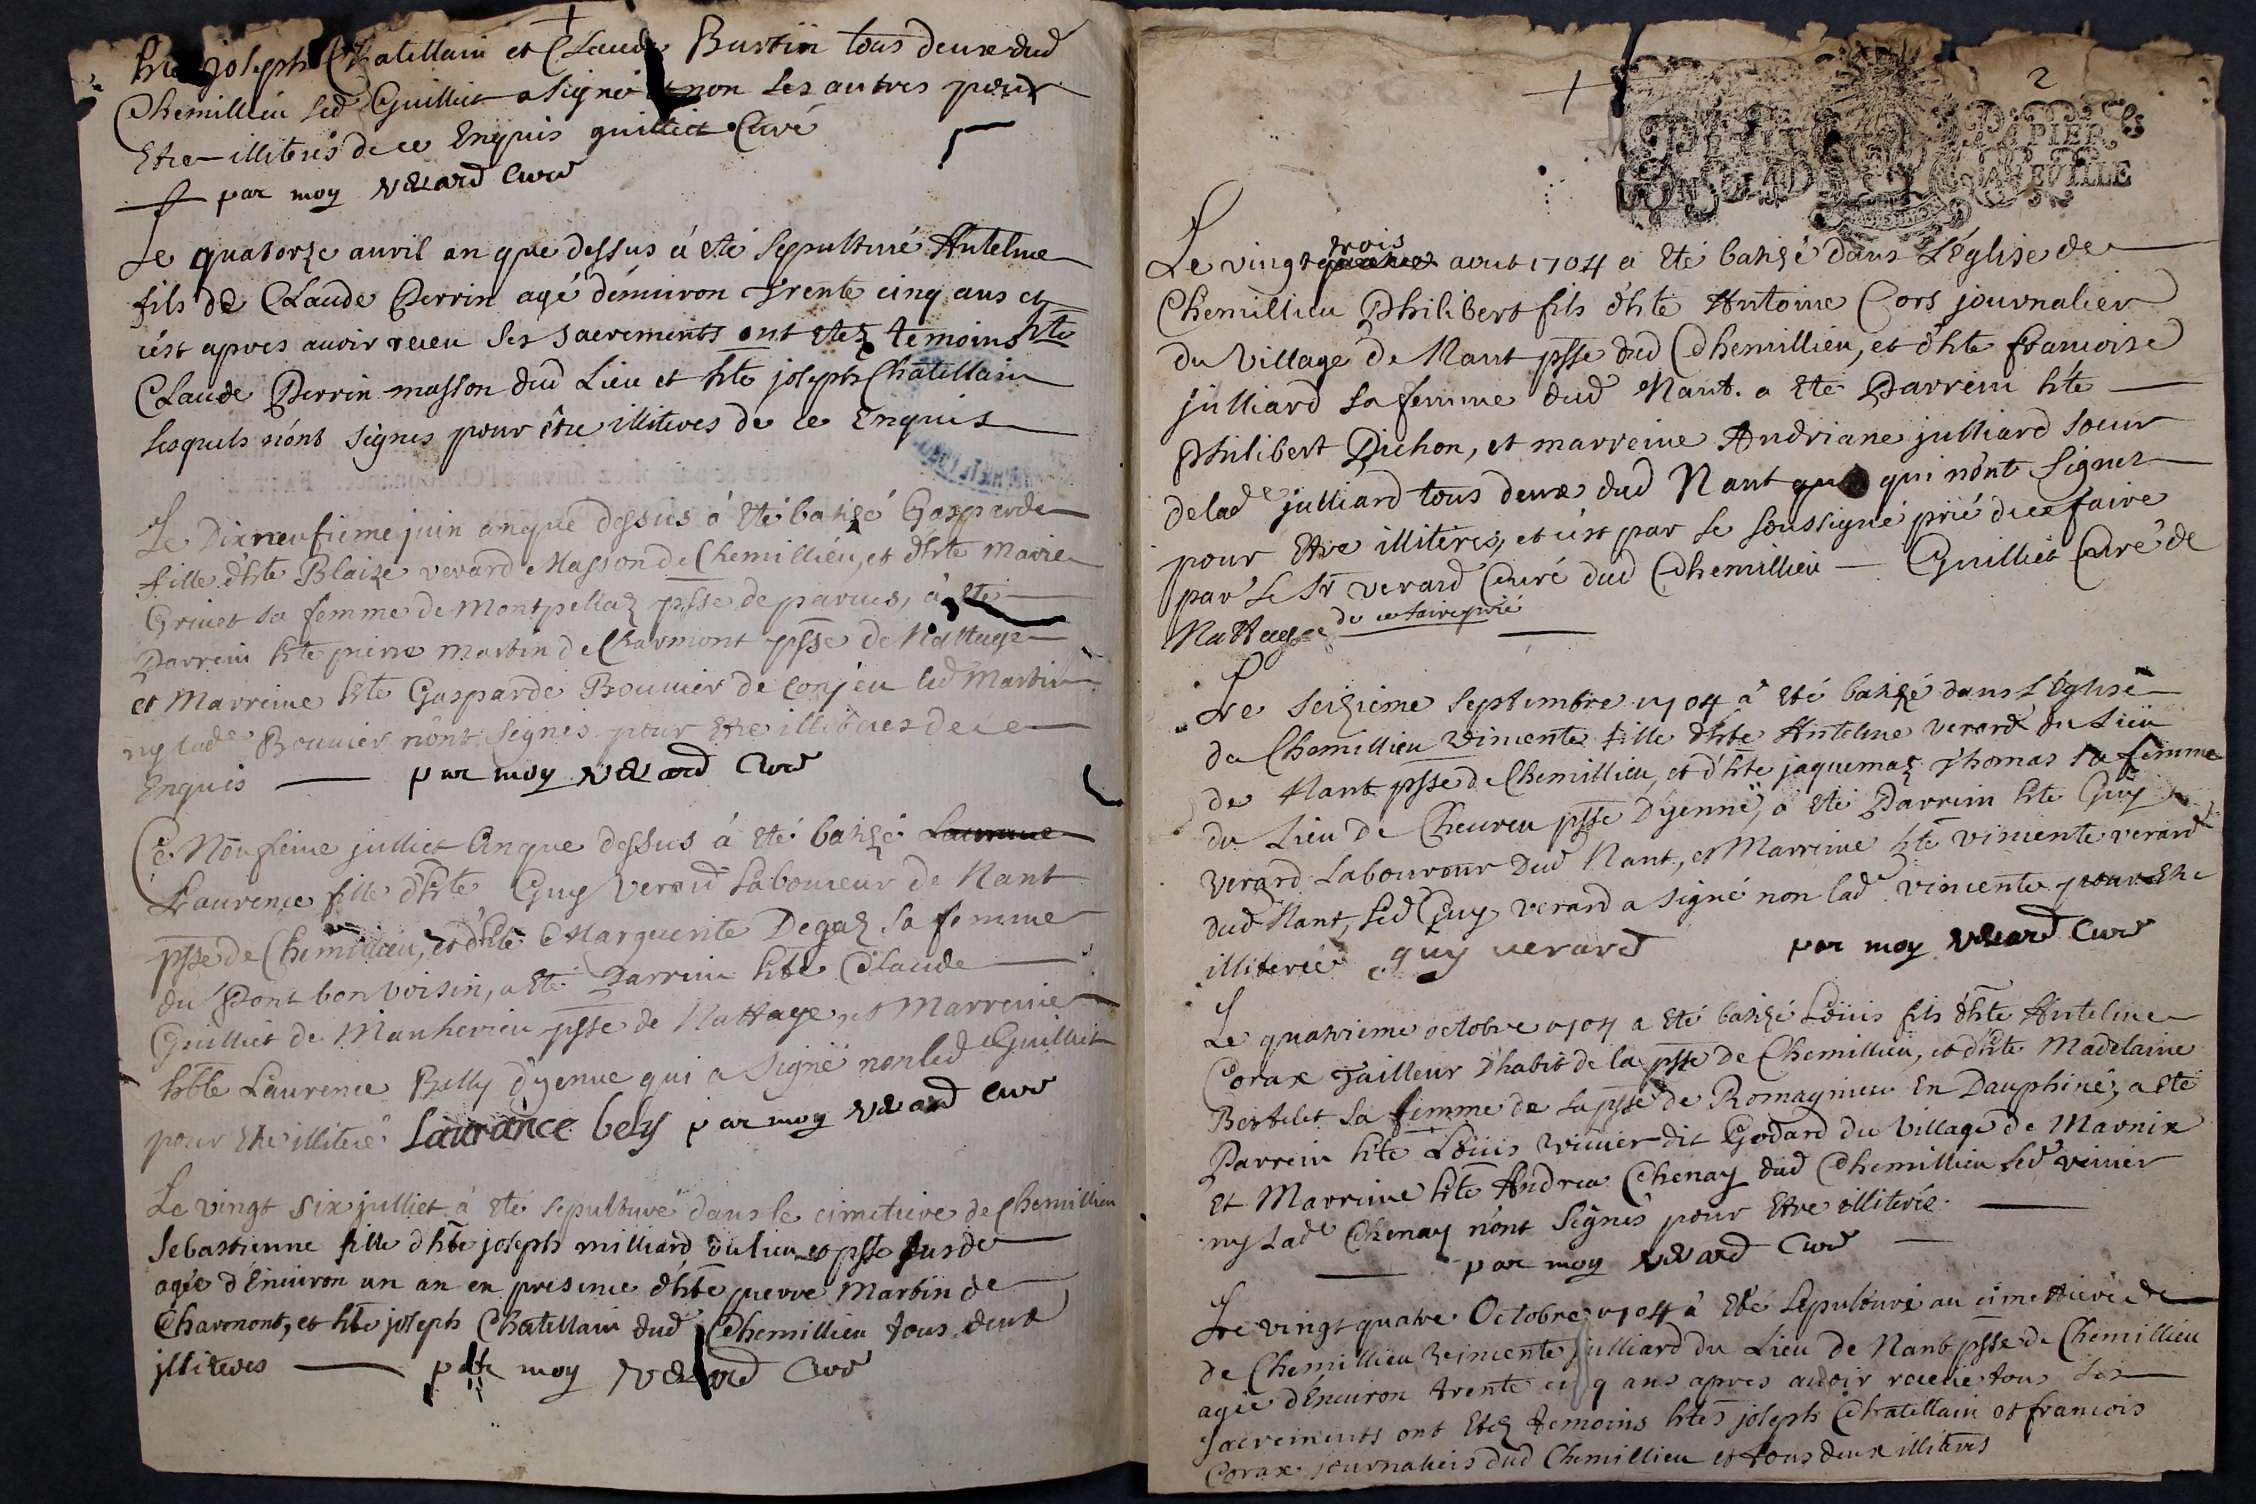 hte joseph Chatellain et Claude Burtin tous deux dud
Chemillieu led Guilliet a signé et non les autres pour
Etre illiteres de ce Enquis guilliet Curé
par moy verard Curé
Le quatorze auril an que dessus à eté sepulturé Antelme
fils de Claude Perrin agé d'enuiron trente cinq ans et
c'est apres auoir receu ses sacrements ont etez temoins hte
Claude Perrin masson dud Lieu et hte joseph Chatellain
lesquels n'ont signés pour être illiteres de ce Enquis
Le Dixneufieme juin anque dessus à eté batizé Gasparde
fille d'hte Blaize verard Masson de Chemillieu, et d'hte Marie
Griuet sa femme de Montpellaz psse de parues, à eté
Parrein hte pierre Martin de Charmont psse de Nattage
et Marreine hte Gasparde Bouuier de Conjeu led Martin
ny lade Bouuier n'ont Signés pour etre illiteres de ce
Enquis par moy verard Curé
Ce Neufieme julliet Anque dessus à eté batizé
Laurence fille d'hte Guy Verard Laboureur de Nant
psse de Chemillieu, et d'hte Marguerite Degaz sa femme
du Pont bonvoisin, a eté Parrein hte Claude
Guilliet de Manherieu psse de Nattage et Marreine
hble Laurence Belly d'yenne qui a Signé non led Guilliet
pour etre illiteré Laurance bely par moy verard Curé
Le vingt six julliet à eté sepulturé dans le cimetiere de Chemillieu
Sebastienne fille d'hte joseph milliard du lieu et psse
agée d'Enuiron un an en presence d'hte pierre Martin de
Charmont, et hte joseph Chatellain dud Chemillieu tous deux
illiteres par moy verard Curé
2
PAPIER
Le vingt trois aout 1704 a eté batizé dans L'église de
Chemillieu Philibert fils d'hte Antoine Cors journalier
du Village de Nant psse dud Chemillieu, et d'hte francoise
julliard sa femme dud Nant. a eté Parrein hte
Philibert Pichon, et marreine Andriane julliard soeur
de lade julliard tous deux dud Nant qui n'ont Signez
pour etre illiteres, et c'est par le soussigné prié de ce faire
par le Sr verard Curé dud Chemillieu Guilliet Curé de
Nattage de ce faire prié
Le Seizieme Septembre 1704 à eté batizé dans l'Eglise
de Chemillieu Vincente fille d'hte Antelme verard du Lieu
de Nant psse de Chemillieu, et d'hte jaquemaz Thomas sa femme
du Lieu de Cheureu psse D'yenne, à eté Parrein hte Guy
Verard Laboureur Dud Nant, et Marreine hte vincente verard
dud Nant, led Guy verard a signé non lade vincente pour etre
illiterée guy uerard par moy verard Curé
Le quatrieme octobre 1704 a eté batizé Loüis fils d'hte Antelme
Corax Tailleur d'habit de la psse de Chemillieu, et d'hte Madelaine
Bertelet sa femme de la psse de Romagnieu En Dauphiné, a eté
Parrein hte Loüis viuier dit Godard du Village de Marnix
et Marreine hte Andrea Chenay dud Chemillieu led viuier
ny lade Chenay n'ont Signés pour etre illiteres
par moy verard Curé
Le vingt quatre Octobre 1704 à eté Sepulturé au cimettiere de
de Chemillieu Vincente julliard du Lieu de Nant psse de Chemillieu
agée d'Enuiron trente cinq ans apres auoir receue tous ses
Sacrements ont etez temoins htes joseph Chatellain et francois
Corax journaliers dud Chemillieu et tous deux illiteres